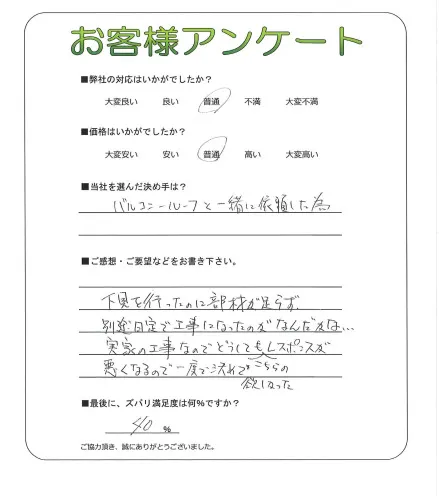 お客様アンケート
■弊社の対応はいかがでしたか？
大変良い 良い 普通 不満 大変不満
■価格はいかがでしたか？
大変安い 安い 普通 高い 大変高い
■当社を選んだ決め手は？
バルコニールーフと一緒に依頼した為
■ご感想・ご要望などをお書き下さい。
下見を行ったのに部材が足らず、
別途日程で工事になったのがなんだかな…
実家の工事なのでどうしてもレスポンスが
悪くなるので一度で決めて こちらの
欲しかった
■最後に、ズバリ満足度は何%ですか？
40 %
ご協力頂き、誠にありがとうございました。